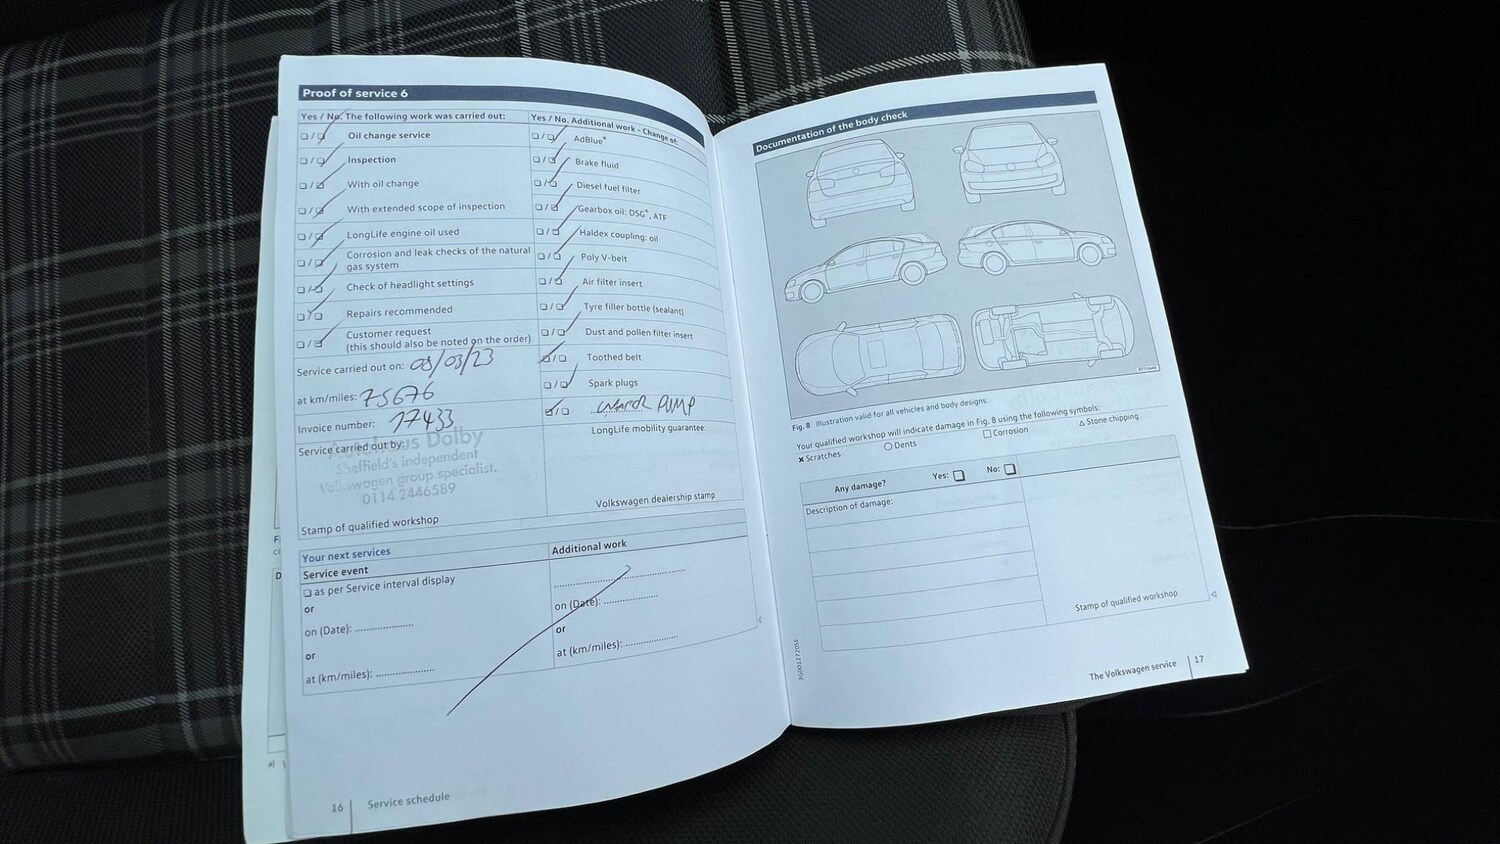 Proof of service 6
Yes / No. The following work was carried out:
Oil change service
Inspection
With oil change
With extended scope of inspection
LongLife engine oil used
Corrosion and leak checks of the natural
gas system
Check of headlight settings
Repairs recommended
Customer request
(this should also be noted on the order)
Service carried out on: 08/03/23
at km/miles: 75676
Invoice number: 17433
Service carried out by:
Autohaus Dolby
Sheffield's independent
Volkswagen group specialist.
0114 2446589
Stamp of qualified workshop
Yes / No. Additional work - Change of:
AdBlue®
Brake fluid
Diesel fuel filter
Gearbox oil: DSG®, ATF
Haldex coupling: oil
Poly V-belt
Air filter insert
Tyre filler bottle (sealant)
Dust and pollen filter insert
Toothed belt
Spark plugs
PUMP
LongLife mobility guarantee:
Volkswagen dealership stamp
Your next services
Service event
as per Service interval display
or
on (Date): ....................
or
at (km/miles): ....................
Additional work
on (Date): ....................
or
at (km/miles): ....................
16 Service schedule
Documentation of the body check
Fig. 8 Illustration valid for all vehicles and body designs.
Your qualified workshop will indicate damage in Fig. 8 using the following symbols:
× Scratches ○ Dents □ Corrosion △ Stone chipping
Any damage? Yes: No:
Description of damage:
Stamp of qualified workshop
3G0012720SE
The Volkswagen service 17